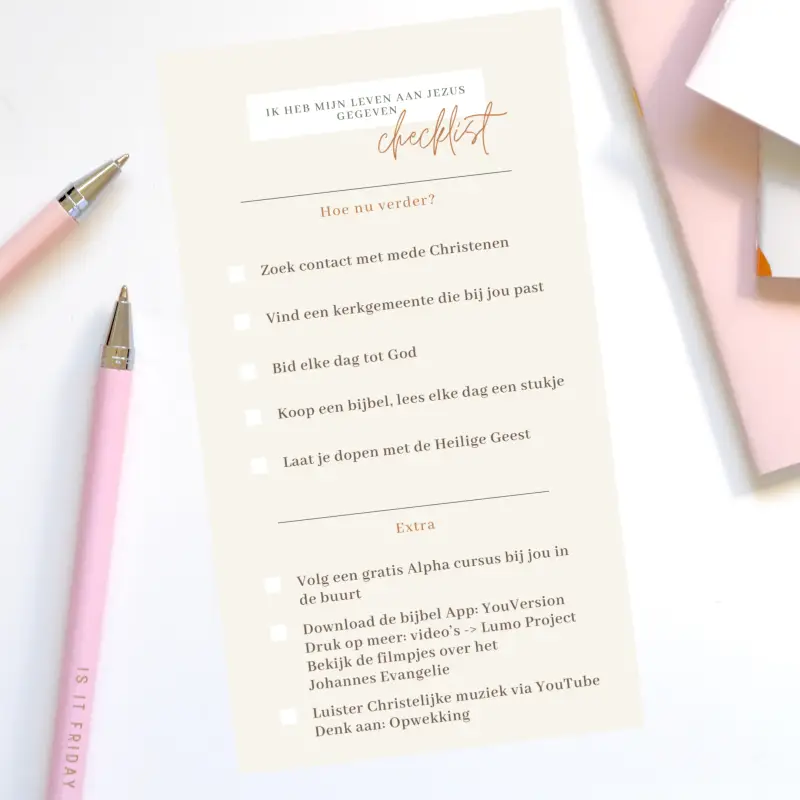 IK HEB MIJN LEVEN AAN JEZUS
GEGEVEN
checklist
Hoe nu verder?
Zoek contact met mede Christenen
Vind een kerkgemeente die bij jou past
Bid elke dag tot God
Koop een bijbel, lees elke dag een stukje
Laat je dopen met de Heilige Geest
Extra
Volg een gratis Alpha cursus bij jou in
de buurt
Download de bijbel App: YouVersion
Druk op meer: video's -> Lumo Project
Bekijk de filmpjes over het
Johannes Evangelie
Luister Christelijke muziek via YouTube
Denk aan: Opwekking
IS IT FRIDAY